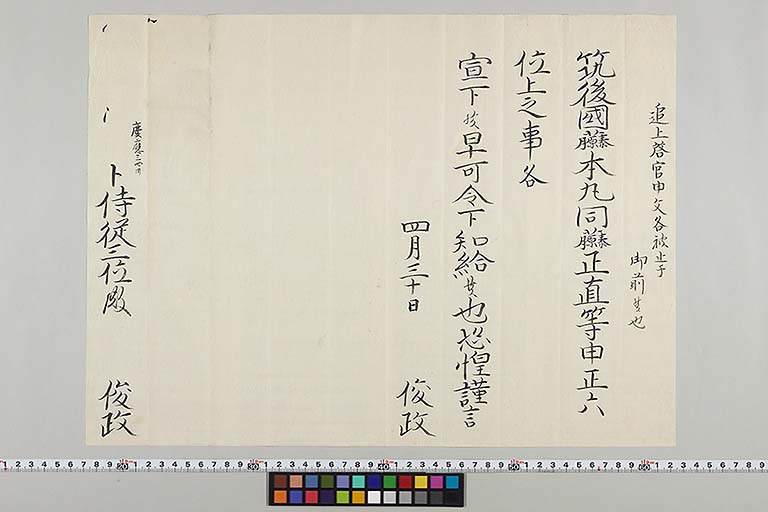 追上啓官申文各被止于
御前候也
筑後國藤本丸同藤正直等申正六
位上之事各
宣下候早可令下知給候也恐惶謹言
四月三十日 俊政
慶應三四
卜侍従三位殿 俊政